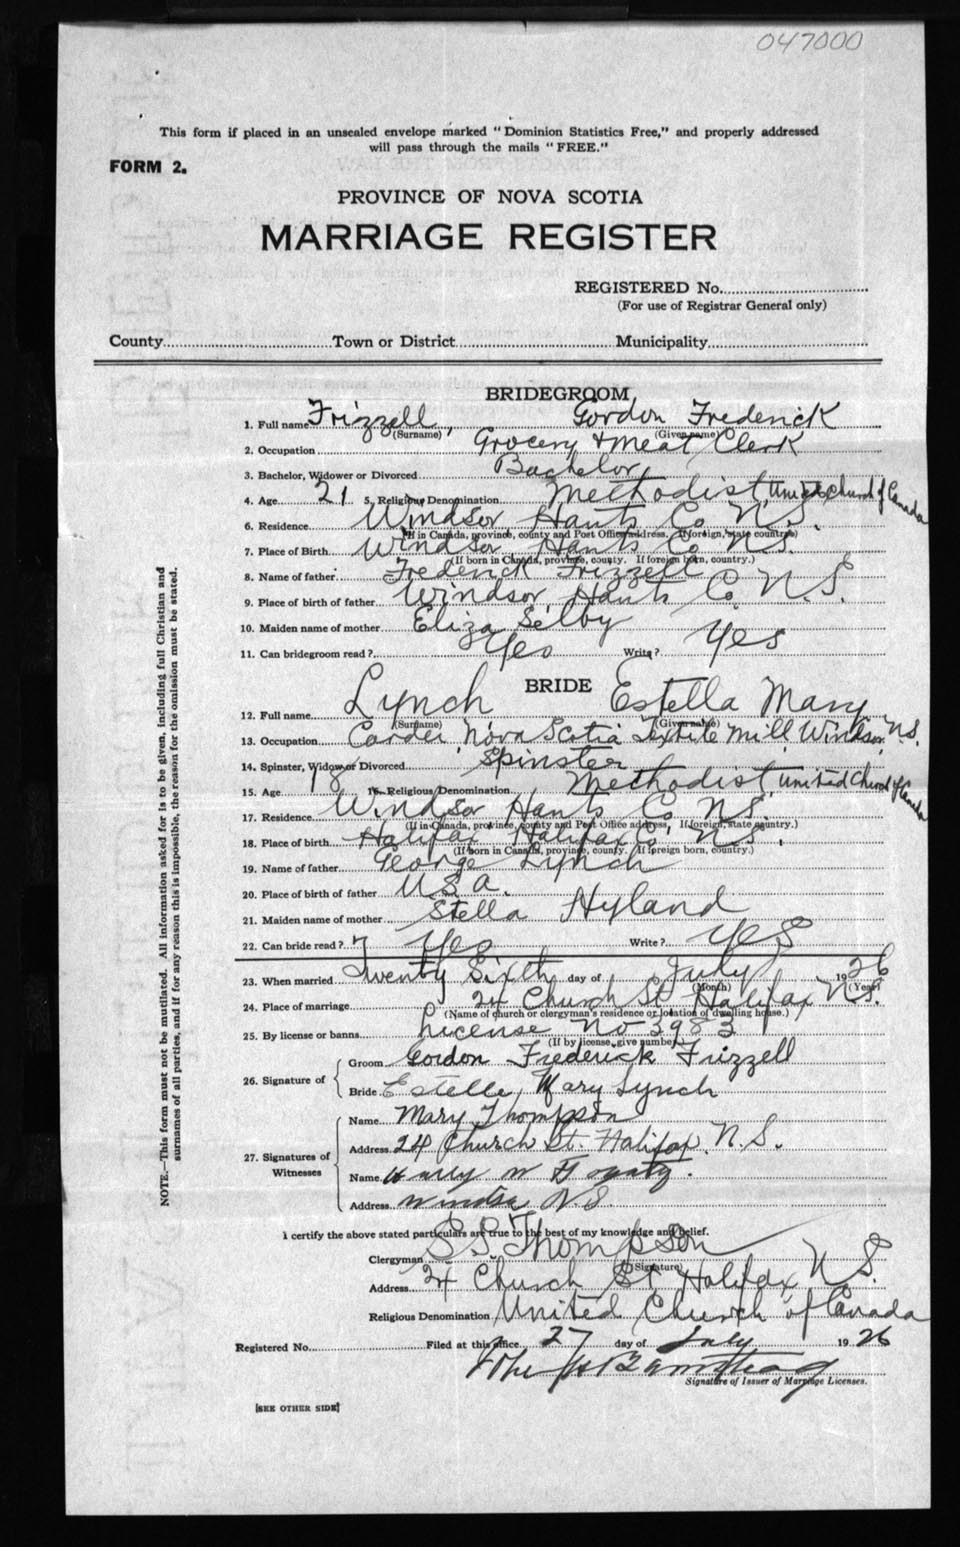 047000
This form if placed in an unsealed envelope marked "Dominion Statistics Free," and properly addressed
will pass through the mails "FREE."
FORM 2.
PROVINCE OF NOVA SCOTIA
MARRIAGE REGISTER
REGISTERED No.
(For use of Registrar General only)
County Town or District Municipality
BRIDEGROOM
1. Full name Frizzell, Gordon Frederick
(Surname) (Given name)
2. Occupation Grocery & Meat Clerk
3. Bachelor, Widower or Divorced Bachelor
4. Age 21 5. Religious Denomination Methodist, United Church of Canada
6. Residence Windsor Hants Co N.S.
(If in Canada, province, county and Post Office address. If foreign, state country)
7. Place of Birth Windsor, Hants Co N.S.
(If born in Canada, province, county. If foreign born, country.)
8. Name of father Frederick Frizzell
9. Place of birth of father Windsor, Hants Co. N.S.
10. Maiden name of mother Eliza Selby
11. Can bridegroom read? Yes Write? Yes
BRIDE
12. Full name Lynch Estella Mary
(Surname) (Given name)
13. Occupation Carder, Nova Scotia Textile Mill Windsor N.S.
14. Spinster, Widow or Divorced Spinster
15. Age 18 16. Religious Denomination Methodist, United Church of Canada
17. Residence Windsor Hants Co N.S.
(If in Canada, province, county and Post Office address, If foreign, state country.)
18. Place of birth Halifax Halifax Co N.S.
(If born in Canada, province, county. If foreign born, country.)
19. Name of father George Lynch
20. Place of birth of father U S A.
21. Maiden name of mother Stella Hyland
22. Can bride read? Yes Write? Yes
23. When married Twenty Sixth day of July 1926
(Month) (Year)
24. Place of marriage 24 Church St Halifax N.S.
(Name of church or clergyman's residence or location of dwelling house.)
25. By license or banns License No 3983
(If by license, give number)
26. Signature of Groom Gordon Frederick Frizzell
Bride Estella Mary Lynch
27. Signatures of Witnesses
Name Mary Thompson
Address 24 Church St. Halifax, N.S.
Name Harry W
Address Windsor N.S
I certify the above stated particulars are true to the best of my knowledge and belief.
Clergyman Thompson
(Signature)
Address 24 Church St Halifax N.S.
Religious Denomination United Church of Canada
Registered No. Filed at this office 27 day of July 1926
Signature of Issuer of Marriage Licenses.
[SEE OTHER SIDE]
NOTE.—This form must not be mutilated. All information asked for is to be given, including full Christian and
surnames of all parties, and if for any reason this is impossible, the reason for the omission must be stated.